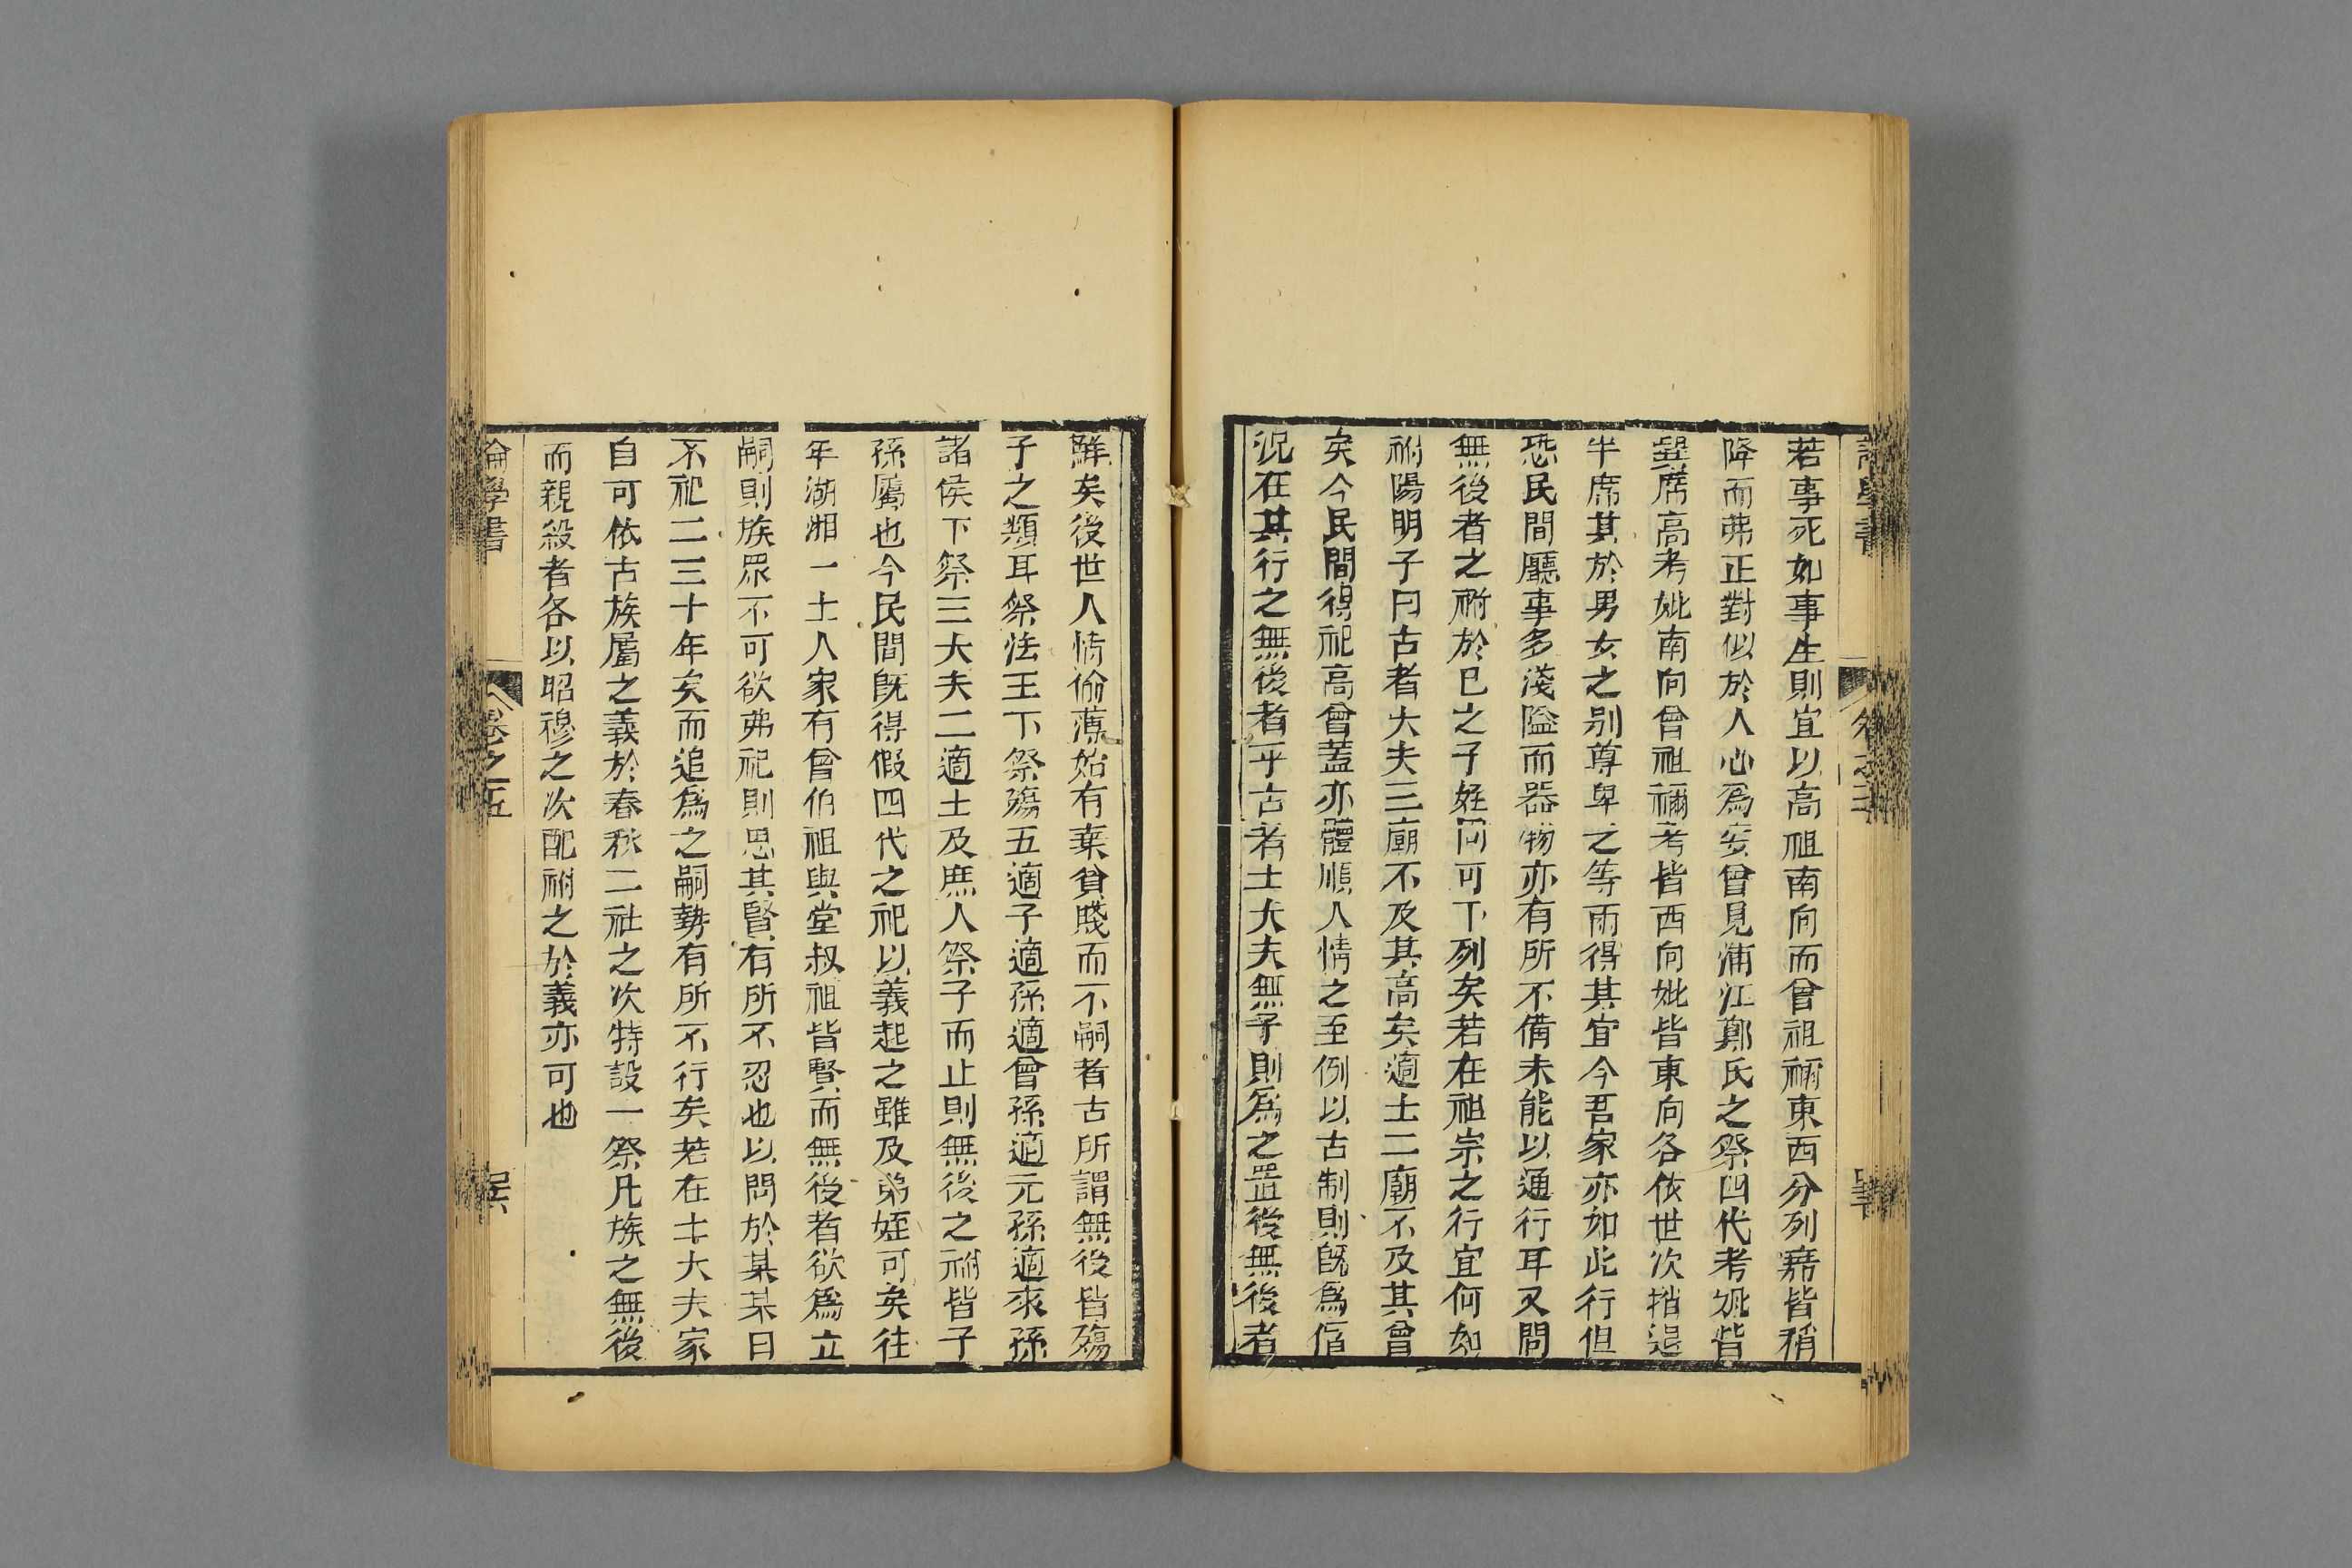 若事死如事生則宜以高祖南向而曾祖禰東西分列席皆稍
降而弗正對似於人心爲安曾見浦江鄭氏之祭四代考妣皆
異席高考妣南向曾祖禰考皆西向妣皆東向各依世次稍退
半席其於男女之别尊卑之等兩得其宜今吾家亦如此行但
恐民間廳事多淺隘而器物亦有所不備未能以通行耳又問
無後者之祔於己之子姪固可下列矣若在祖宗之行宜何如
祔陽明子曰古者大夫三廟不及其高矣適士二廟不及其曾
矣今民間得祀高曾蓋亦體順人情之至例以古制則既爲僭
況在其行之無後者乎古者士大夫無子則爲之置後無後者
鮮矣後世人情偷薄始有棄貧賤而不嗣者古所謂無後皆殤
子之類耳祭法王下祭殤五適子適孫適曾孫適元孫適來孫
諸侯下祭三大夫二適士及庶人祭子而止則無後之祔皆子
孫屬也今民間既得假四代之祀以義起之雖及弟姪可矣往
年湖湘一士人家有曾伯祖與堂叔祖皆賢而無後者欲爲立
嗣則族眾不可欲弗祀則思其賢有所不忍也以問於某某曰
不祀二三十年矣而追爲之嗣勢有所不行矣若在士大夫家
自可依古族屬之義於春秋二社之次特設一祭凡族之無後
而親殺者各以昭穆之次配祔之於義亦可也
論學書
卷之五